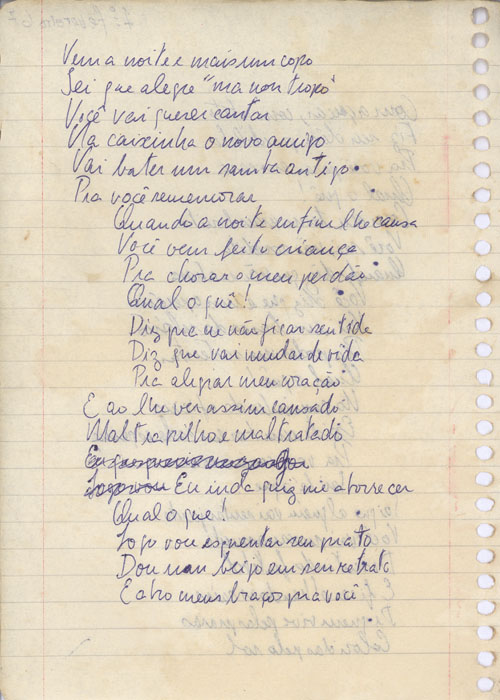 Vem a noite e mais um copo
Sei que alegre "ma non tropo"
Você vai querer cantar
Na caixinha o novo amigo
Vai bater um samba antigo.
Pra você rememorar
Quando a noite enfim lhe cansa
Você vem feito criança
Pra chorar o meu perdão
Qual o quê!
Diz não ficar sentida
Diz que vai mudar de vida
Pra alegrar meu coração
E ao lhe ver assim cansado
Maltrapilho e maltratado
Logo vou Eu inda quiz me aborrecer
Qual o que
Logo vou esquentar seu prato
Dou um beijo em seu retrato
E abro meus braços pra você.